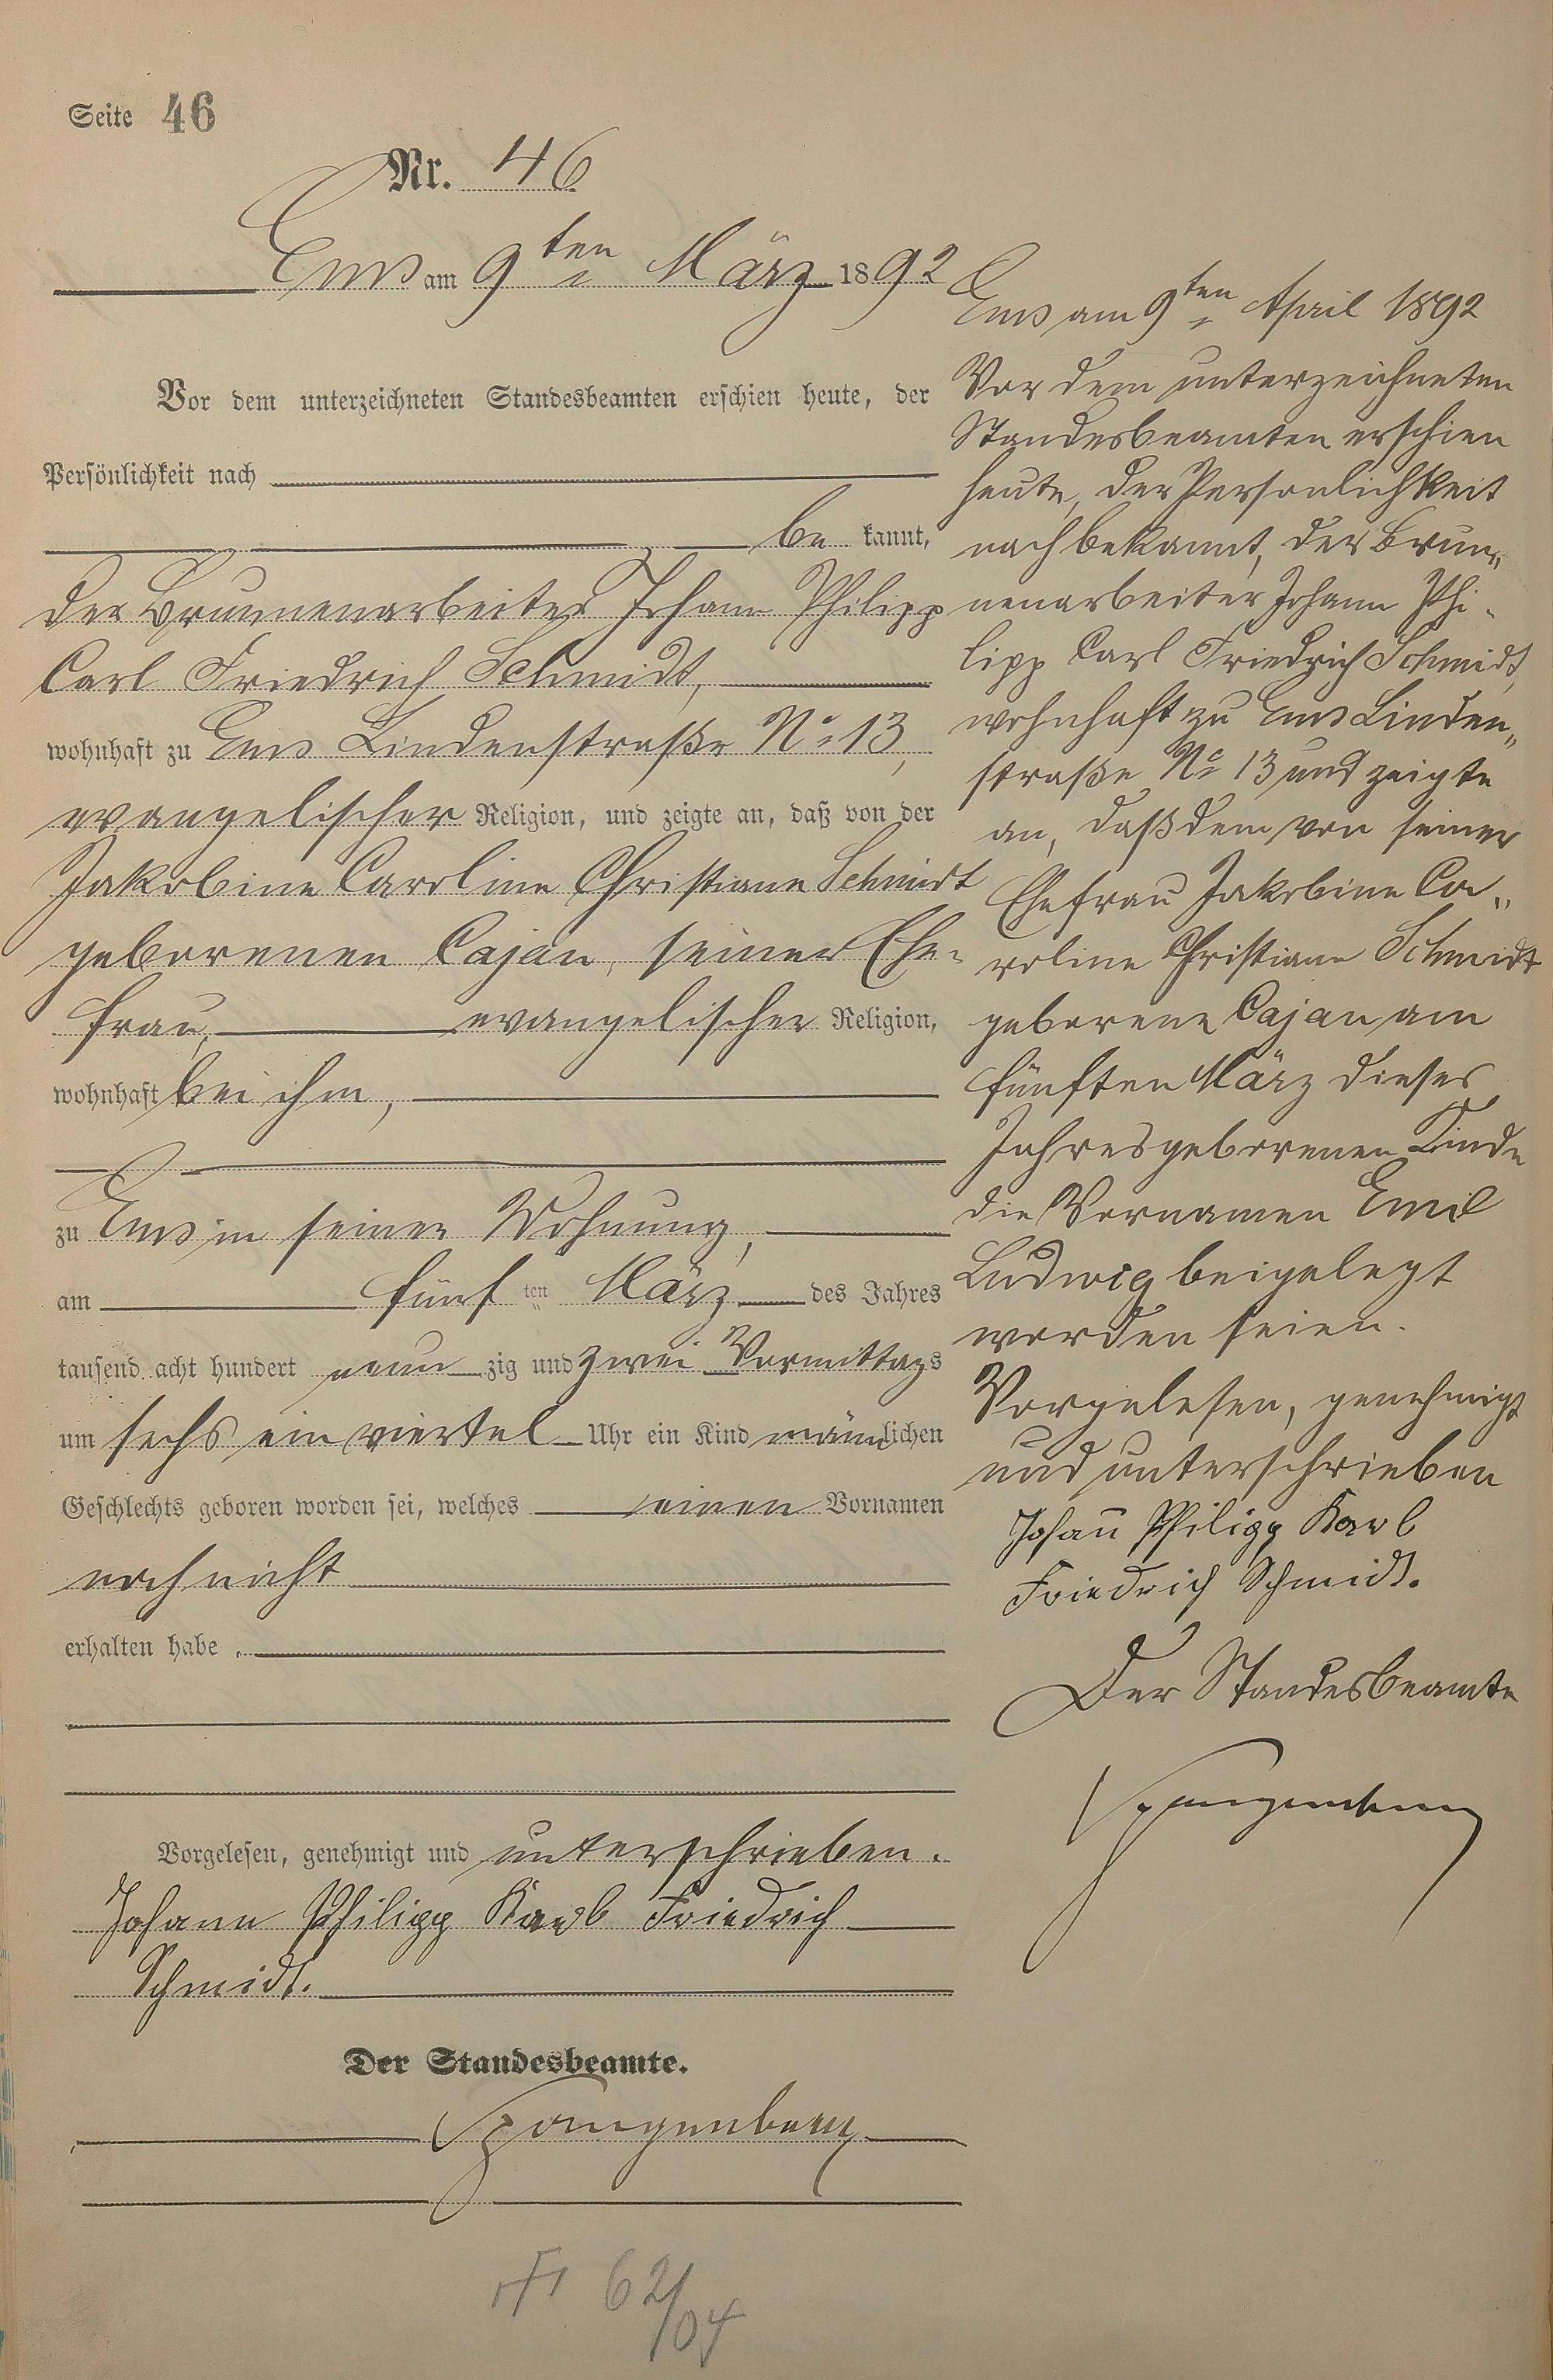 Seite 46
Nr. 46
Ems am 9ten März 1892
Vor dem unterzeichneten Standesbeamten erschien heute, der
Persönlichkeit nach
be kannt,
der Brunnenarbeiter Johann Philipp
Carl Friedrich Schmidt,
wohnhaft zu Ems Lindenstraße No 13,
evangelischer Religion, und zeigte an, daß von der
Jakobine Caroline Christiane Schmidt
geborenen Cajan, seiner Ehe-
frau, evangelischer Religion,
wohnhaft bei ihm,
zu Ems in seiner Wohnung,
am fünf ten März des Jahres
tausend acht hundert neun zig und zwei Vormittags
um sechs ein viertel Uhr ein Kind männlichen
Geschlechts geboren worden sei, welches einen Vornamen
noch nicht
erhalten habe.
Vorgelesen, genehmigt und unterschrieben.
Johann Philipp Karl Friedrich
Schmidt.
Der Standesbeamte.
Spangenberg
62/04
Ems am 9ten April 1892
Vor dem unterzeichneten
Standesbeamten erschien
heute, der Persönlichkeit
nach bekannt, der Brun„
nenarbeiter Johann Phi-
lipp Carl Friedrich Schmidt,
wohnhaft zu Ems Linden„
straße No 13 und zeigte
an, daß dem von seiner
Ehefrau Jakobine Ca„
roline Christiane Schmidt
geborene Cajan am
fünften März dieses
Jahres geborenen Kinde
die Vornamen Emil
Ludwig beigelegt
worden seien.
Vorgelesen, genehmigt
und unterschrieben
Johann Philipp Karl
Friedrich Schmidt.
Der Standesbeamte
Spangenberg